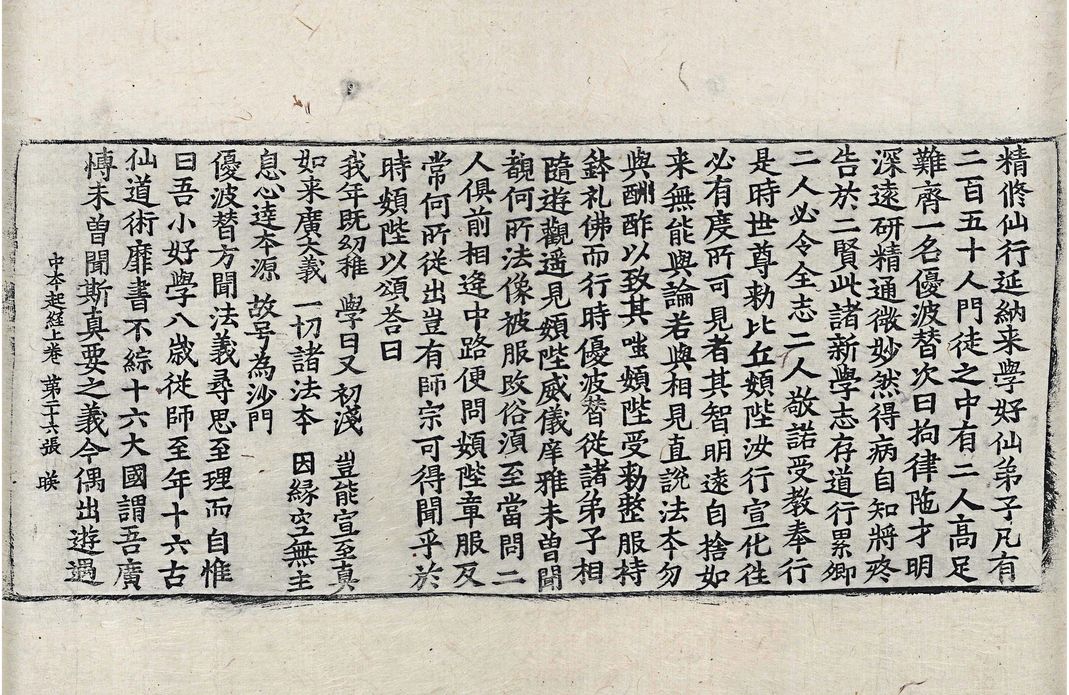 精修仙行延納来學好仙弟子凡有
二百五十人門徒之中有二人高足
難齊一名優波替次曰拘律陁才明
深遠研精通微妙然得病自知將終
告於二賢此諸新學志存道行累卿
二人必令全志二人敬諾受教奉行
是時世尊勑比丘頞陛汝行宣化往
必有度所可見者其智明遠自捨如
来無能與論若與相見直說法本勿
與酬酢以致其嗤頞陛受勑整服持
鉢礼佛而行時優波替從諸弟子相
隨遊觀遥見頞陛威儀庠雅未曾聞
覩何所法像被服改俗湏至當問二
人俱前相逢中路便問頞陛章服反
常何所從出豈有師宗可得聞乎於
時頞陛以頌荅曰
我年既幼稚　學日又初淺　豈能宣至真
如来廣大義　一切諸法本　因緣空無主
息心達本源　故号為沙門
優波替方聞法義尋思至理而自惟
曰吾小好學八歲従師至年十六古
仙道術靡書不綜十六大國謂吾廣
愽未曾聞斯真要之義今偶出遊遇
中本起経上卷　第二十六張　映